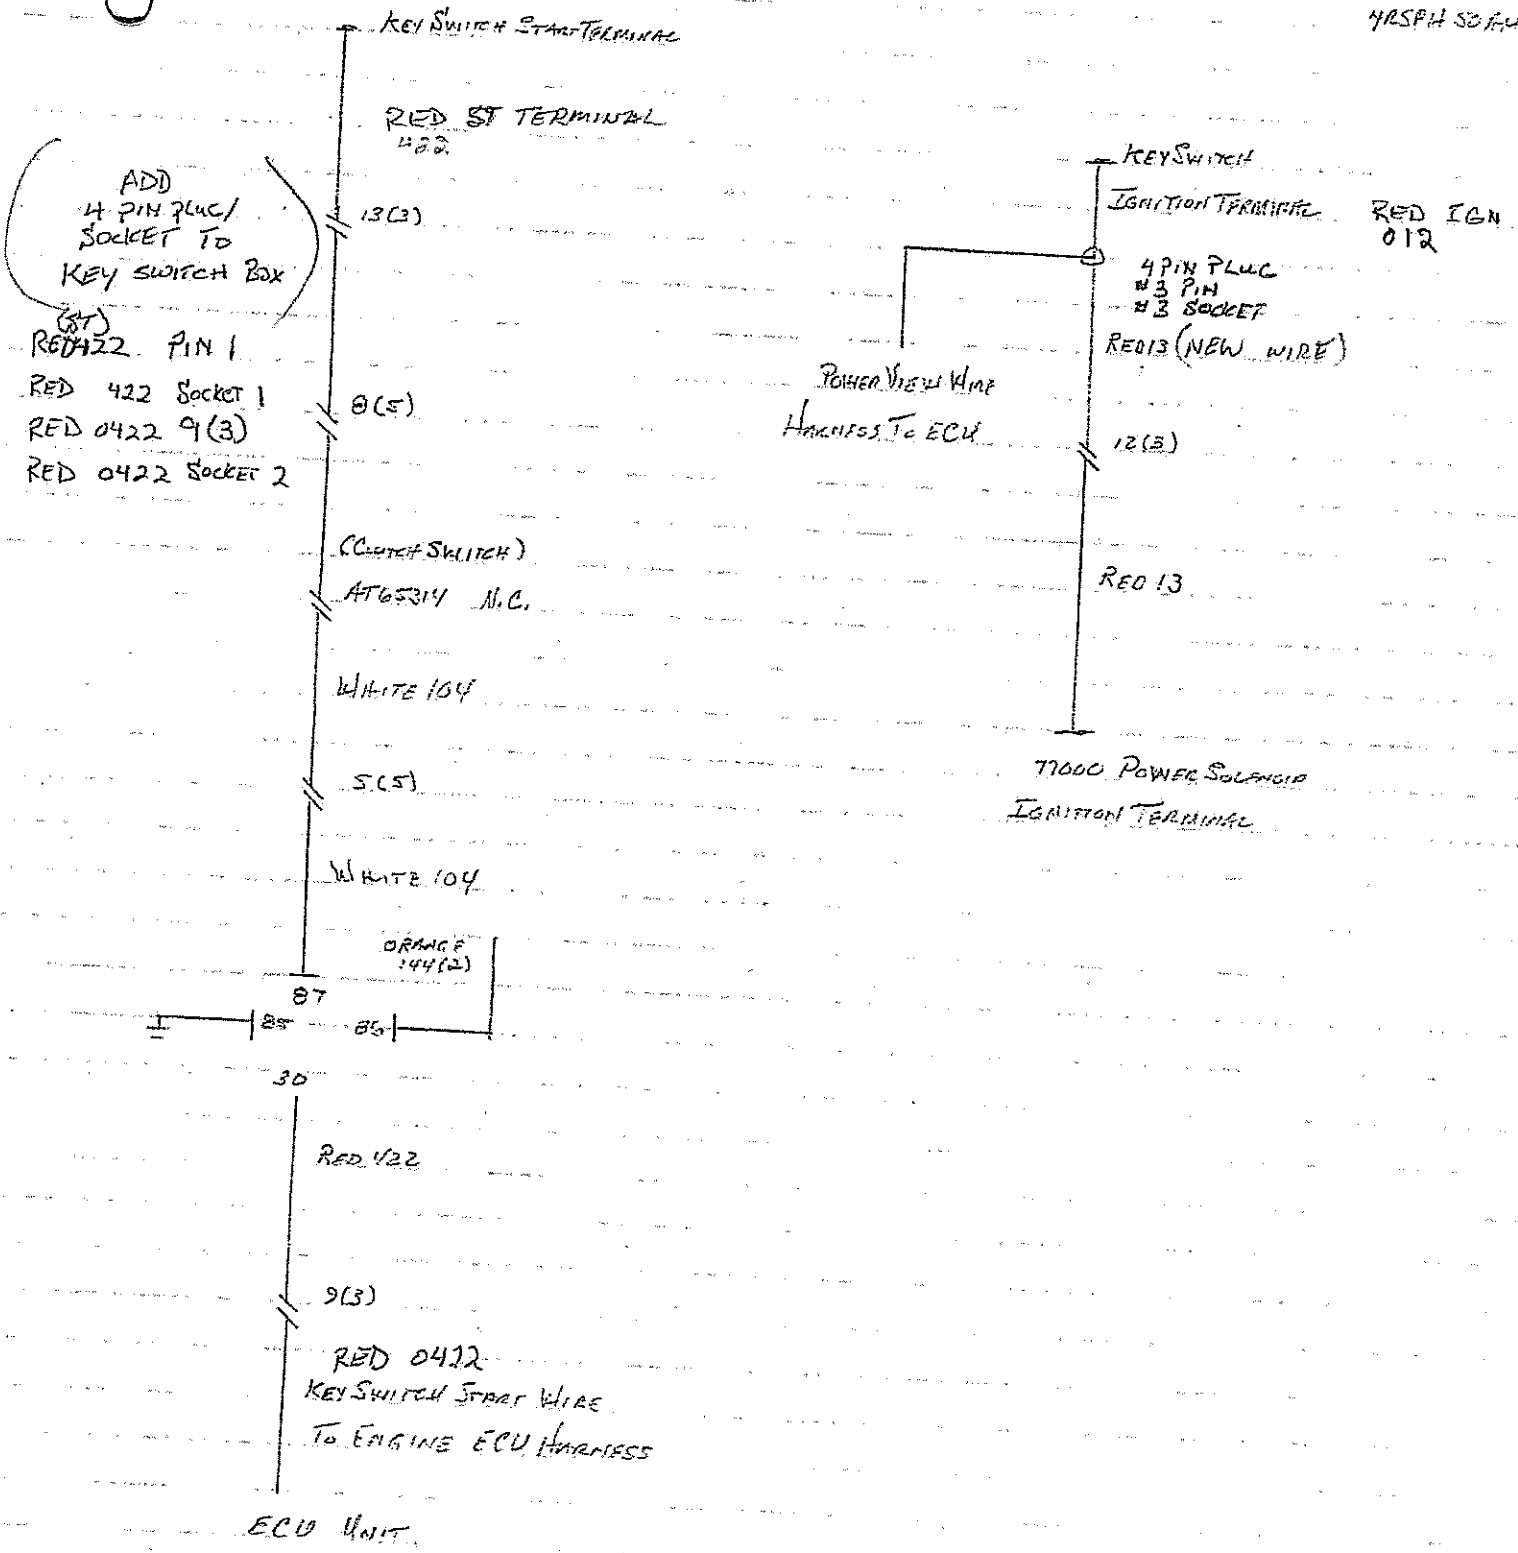 KEY SWITCH START TERMINAL
RED ST TERMINAL
422
ADD
4 PIN PLUG/
SOCKET TO
KEY SWITCH BOX
(ST)
RED 422 PIN 1
RED 422 SOCKET 1
RED 0422 9(3)
RED 0422 SOCKET 2
13(3)
8(5)
(CLUTCH SWITCH)
AT65314 N.C.
WHITE 104
5(5)
WHITE 104
ORANGE
144(2)
87
85 86
30
RED 422
9(3)
RED 0422
KEY SWITCH START WIRE
TO ENGINE ECU HARNESS
ECU UNIT
KEY SWITCH
IGNITION TERMINAL
RED IGN
012
4 PIN PLUG
#3 PIN
#3 SOCKET
RED 13 (NEW WIRE)
POWER VIEW WIRE
HARNESS TO ECU
12(3)
RED 13
77000 POWER SOLENOID
IGNITION TERMINAL